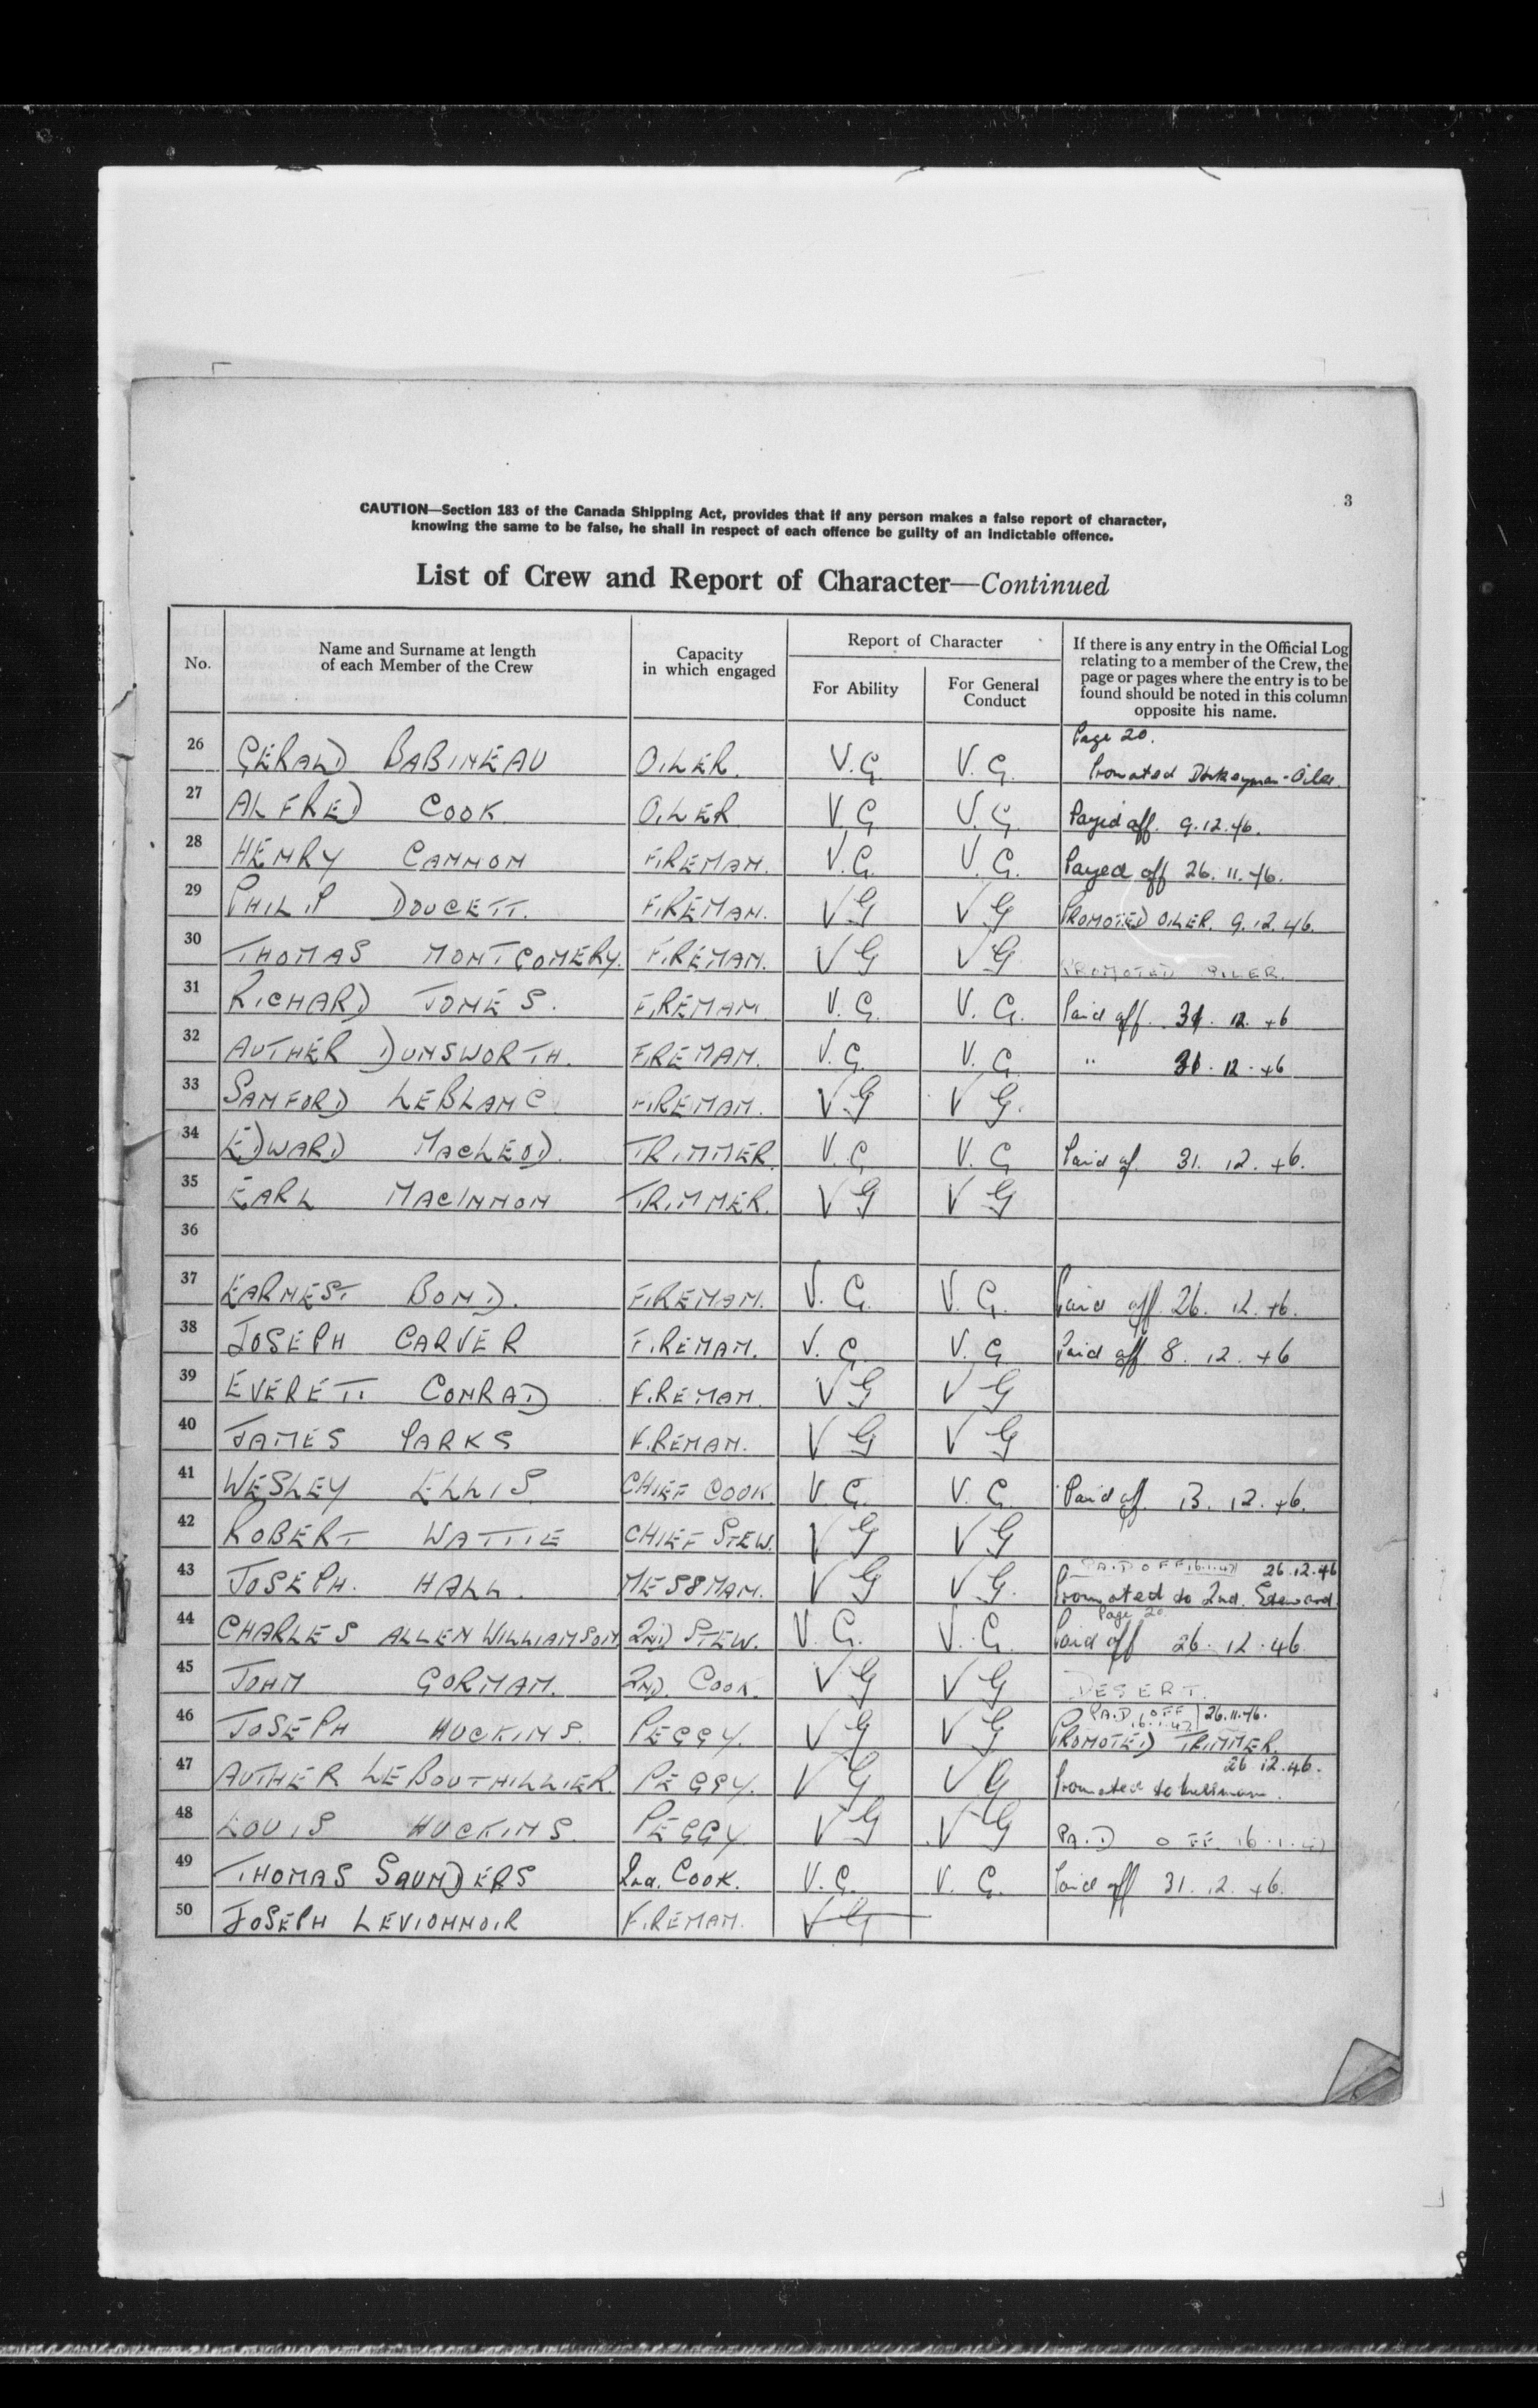 3
CAUTION—Section 183 of the Canada Shipping Act, provides that if any person makes a false report of character,
knowing the same to be false, he shall in respect of each offence be guilty of an indictable offence.
List of Crew and Report of Character—Continued
No.
Name and Surname at length
of each Member of the Crew
Capacity
in which engaged
Report of Character
For Ability
For General
Conduct
If there is any entry in the Official Log
relating to a member of the Crew, the
page or pages where the entry is to be
found should be noted in this column
opposite his name.
Page 20.
26 GERALD BABINEAU OILER. V.G. V.G. Promoted Donkeyman-Oiler.
27 ALFRED COOK OILER V G V.G. Payed off. 9.12.46.
28 HENRY CANNON FIREMAN. V.G. V.G. Payed off 26.11.46.
29 PHILIP DOUCETT. FIREMAN. VG VG PROMOTED OILER. 9.12.46.
30 THOMAS MONTGOMERY. FIREMAN. VG VG PROMOTED OILER.
31 RICHARD JONES. FIREMAN V.G. V.G. Paid off. 31. 12. 46
32 AUTHER DUNSWORTH. FIREMAN. V.G. V.G. " 31. 12. 46
33 SANFORD LEBLANC FIREMAN. VG VG.
34 EDWARD MACLEOD. TRIMMER. V.G V.G Paid of. 31. 12. 46.
35 EARL MACINNON TRIMMER. VG VG
36
37 EARNEST BOND. FIREMAN. V.G. V.G. Paid off 26. 12. 46.
38 JOSEPH CARVER FIREMAN. V.G V.G Paid off 8. 12. 46
39 EVERETT CONRAD FIREMAN. VG VG
40 JAMES PARKS FIREMAN. VG VG
41 WESLEY ELLIS. CHIEF COOK. V.G. V.G. Paid of. 13. 12. 46.
42 ROBERT WATTIE CHIEF STEW. VG VG
PAID OFF 16.1.47 26.12.46
43 JOSEPH. HALL. MESSMAN. VG VG. Promoted to 2nd. Steward
Page 20
44 CHARLES ALLEN WILLIAMSON 2ND STEW. V.G. V.G. Paid off 26.12.46
45 JOHN GORMAN. 2ND. COOK. VG VG DESERT.
PAID OFF 26.11.46.
16.1.47
46 JOSEPH HUCKINS. PEGGY. VG VG PROMOTED TRIMMER.
26 12.46.
47 AUTHER LEBOUTHILLIER. PEGGY. VG VG Promoted to
48 LOUIS HUCKINS. PEGGY VG VG PAID OFF. 16.1.47
49 THOMAS SAUNDERS 2nd. COOK. V.G. V.G. Paid off 31. 12. 46.
50 JOSEPH LEVIONNOIR FIREMAN. VG